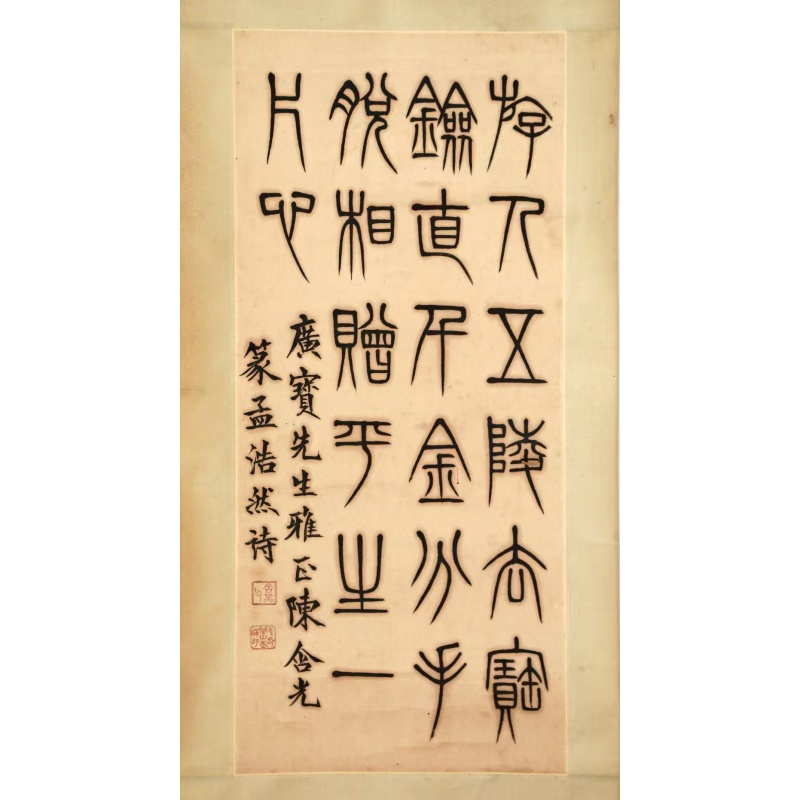 斿人五陵去寶
鐱直千金分手
脫相贈平生一
片心
廣寶先生雅正陳含光
篆孟浩然詩